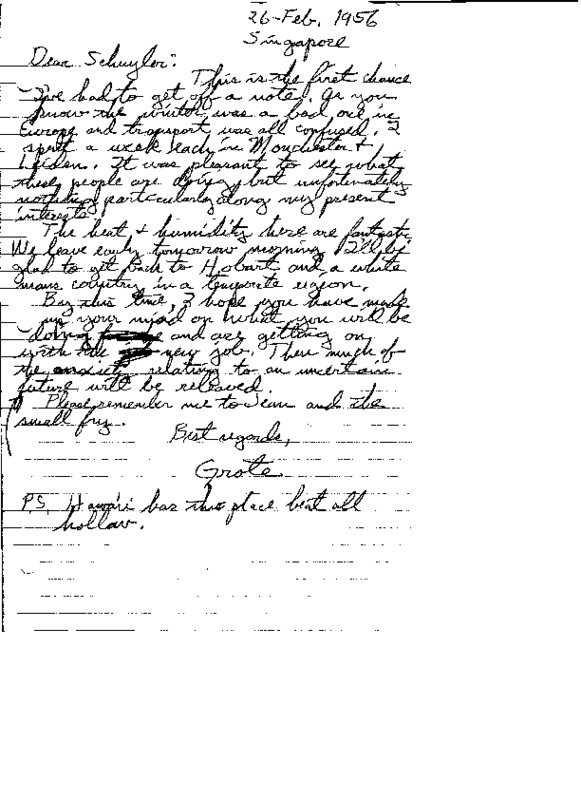 26-Feb, 1956
Singapore
Dear Schuyler:
This is the first chance
I've had to get off a note. As you
know the winter was a bad one in
Europe and transport was all confused. I
spent a week each in Manchester +
Leiden. It was pleasant to see what
these people are doing, but unfortunately
nothing particularly along my present
interests.
The heat + humidity here are fantastic
We leave early tomorrow morning. I'll be
glad to get back to Hobart and a white
mans country in a temperate region.
By this time, I hope you have made
up your mind on what you will be
doing and are getting on
with the new job. Then much of
the anxiety relating to an uncertain
future will be relieved.
Please remember me to Jean and the
small fry.
Best regards,
Grote
PS, Hawaii has this place beat all
hollow.